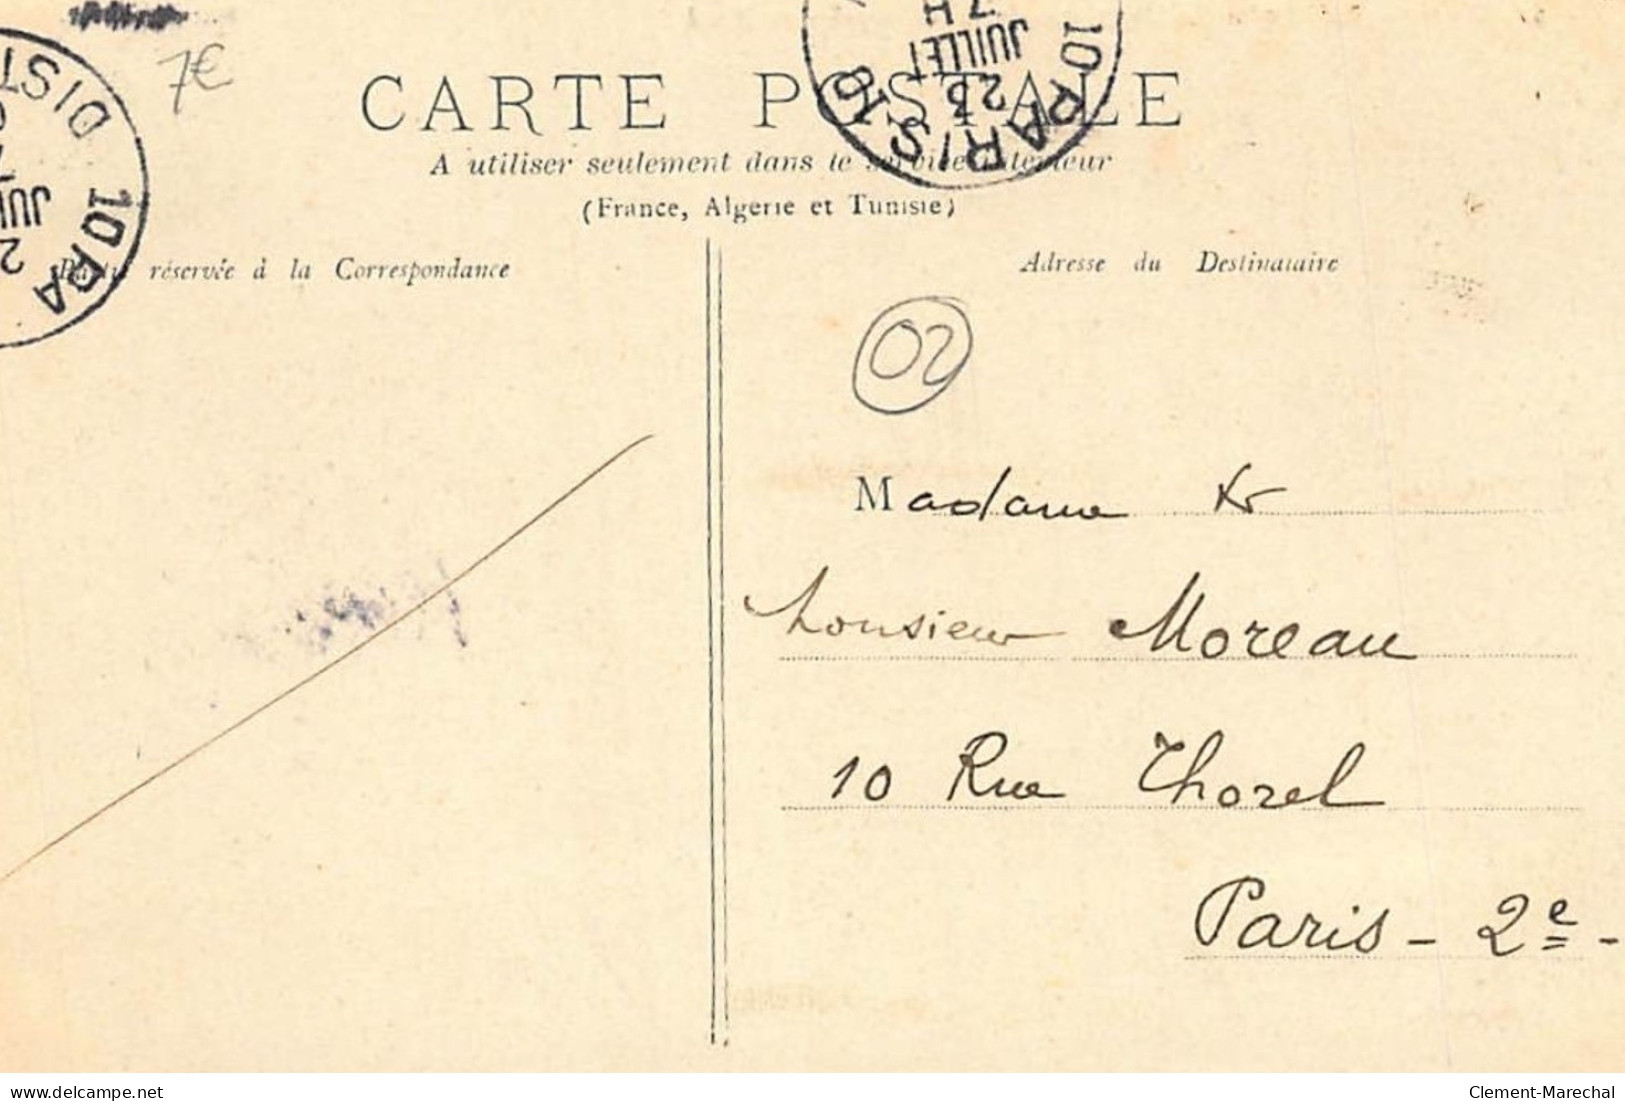 7€
CARTE POSTALE
A utiliser seulement dans le service intérieur
(France, Algérie et Tunisie)
Partie réservée à la Correspondance
Adresse du Destinataire
PARIS 10
DIST
23
JUILLET
7 H
10 PA
DIST
JUI
2
02
Madame &
Monsieur Moreau
10 Rue Thorel
Paris - 2e -
www.delcampe.net
Clement-Marechal